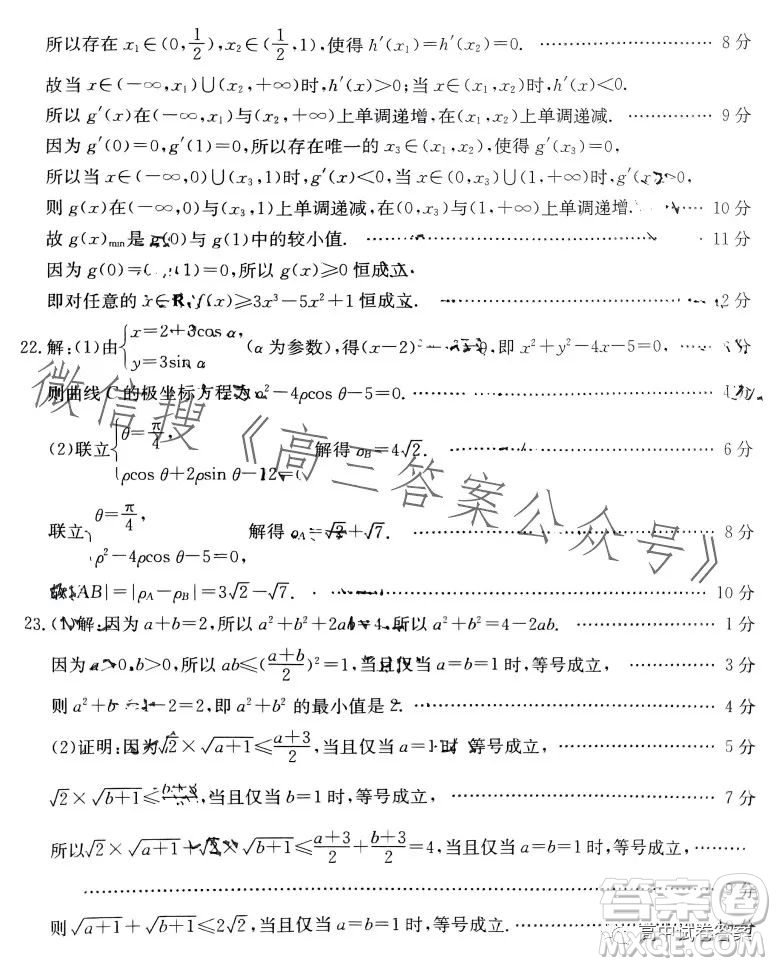 所以存在 x₁∈(0,1/2),x₂∈(1/2,1),使得 h′(x₁)=h′(x₂)=0. 8分
故当 x∈(-∞,x₁)∪(x₂,+∞)时,h′(x)>0;当 x∈(x₁,x₂)时,h′(x)<0.
所以 g′(x)在(-∞,x₁)与(x₂,+∞)上单调递增,在(x₁,x₂)上单调递减. 9分
因为 g′(0)=0,g′(1)=0,所以存在唯一的 x₃∈(x₁,x₂),使得 g′(x₃)=0,
所以当 x∈(-∞,0)∪(x₃,1)时,g′(x)<0,当 x∈(0,x₃)∪(1,+∞)时,g′(x
则 g(x)在(-∞,0)与(x₃,1)上单调递减,在(0,x₃)与(1,+∞)上单调递增. 10分
故 g(x)min是 g(0)与 g(1)中的较小值. 11分
因为 g(0)= (1)=0,所以 g(x)≥0 恒成立.
即对任意的 x∈R, (x)≥3x³-5x²+1 恒成立. 2分
22.解:(1)由{x=2+3cos α, y=3sin α (α 为参数),得(x-2)² 即 x²+y²-4x-5=0, 分
则曲线 C 的极坐标方程为 ρ²-4ρcos θ-5=0. 4
(2)联立{θ=π/4, ρcos θ+2ρsin θ-12=0 解得 ρB=4√2. 6分
联立{θ=π/4, ρ²-4ρcos θ-5=0, 解得 ρA=√2+√7. 8分
故|AB|=|ρA-ρB|=3√2-√7. 10分
23.(1)解:因为 a+b=2,所以 a²+b²+2ab=4,所以 a²+b²=4-2ab. 1分
因为 a>0,b>0,所以 ab≤((a+b)/2)²=1,当且仅当 a=b=1 时,等号成立, 3分
则 a²+b -2=2,即 a²+b² 的最小值是 2. 4分
(2)证明:因为√2×√(a+1)≤(a+3)/2,当且仅当 a=1时,等号成立, 5分
√2×√(b+1)≤(b+3)/2,当且仅当 b=1 时,等号成立, 7分
所以√2×√(a+1)+√2×√(b+1)≤(a+3)/2+(b+3)/2=4,当且仅当 a=b=1 时,等号成立,
9分
则√(a+1)+√(b+1)≤2√2,当且仅当 a=b=1 时,等号成立. 分
微信搜《高三答案公众号》
答案圈
高中试卷答案